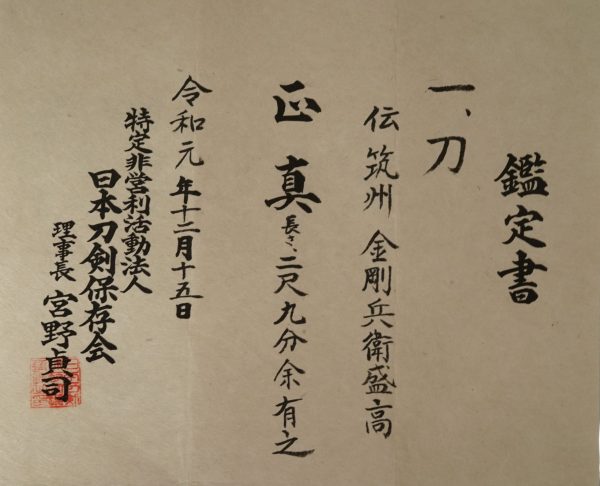 鑑定書
一、刀
伝筑州金剛兵衛盛高
正真長さ、二尺九分余有之
令和元年十二月十五日
特定非営利活動法人
日本刀剣保存会
理事長 宮野貞司